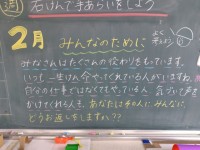 週 石けんで手あらいをしよう
2月 みんなのために
よく考えよう
みなさんはたくさんの役わりをもっています。
いつも一生けん命やってくれている人がいますね。
自分の仕事ではなくても、している人、気づいて声を
かけてくれる人を、あなたは千の人にみんなに、
どうお返しをしますか??